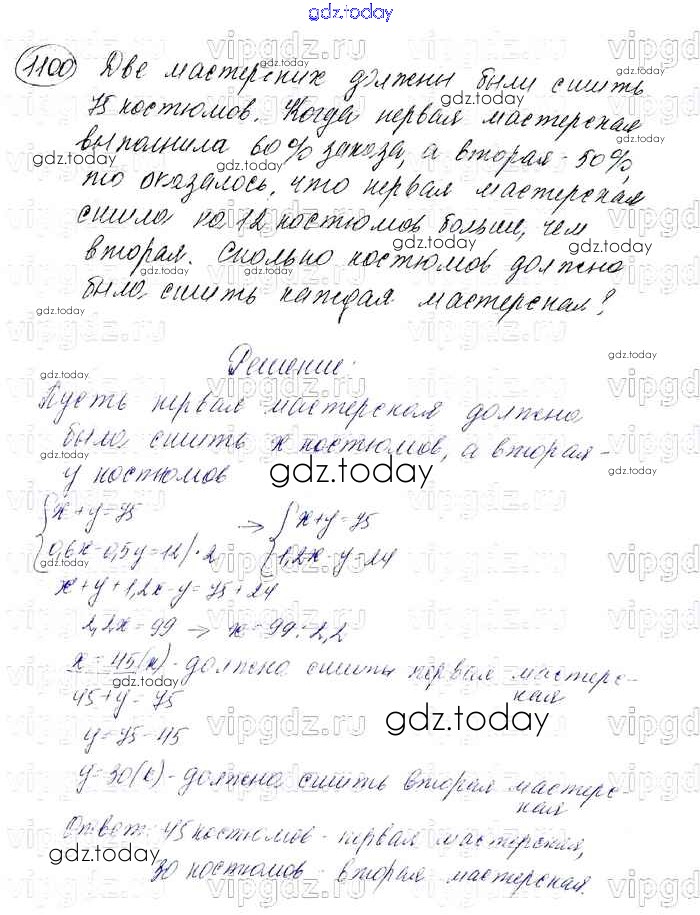 gdz.today
1100 Две мастерских должны были сшить
75 костюмов. Когда первая мастерская
выполнила 60% заказа, а вторая - 50%,
то оказалось, что первая мастерская
сшила на 12 костюмов больше, чем
вторая. Сколько костюмов должна
была сшить каждая мастерская?
Решение:
Пусть первая мастерская должна
была сшить x костюмов, а вторая -
y костюмов
{x+y=75 → {x+y=75
{0,6x-0,5y=12|·2 {1,2x-y=24
x+y+1,2x-y=75+24
2,2x=99 → x=99:2,2
x=45(к) - должна сшить первая мастерс-
кая
45+y=75
y=75-45
y=30(к) - должна сшить вторая мастерс-
кая
Ответ: 45 костюмов - первая мастерская,
30 костюмов - вторая мастерская.